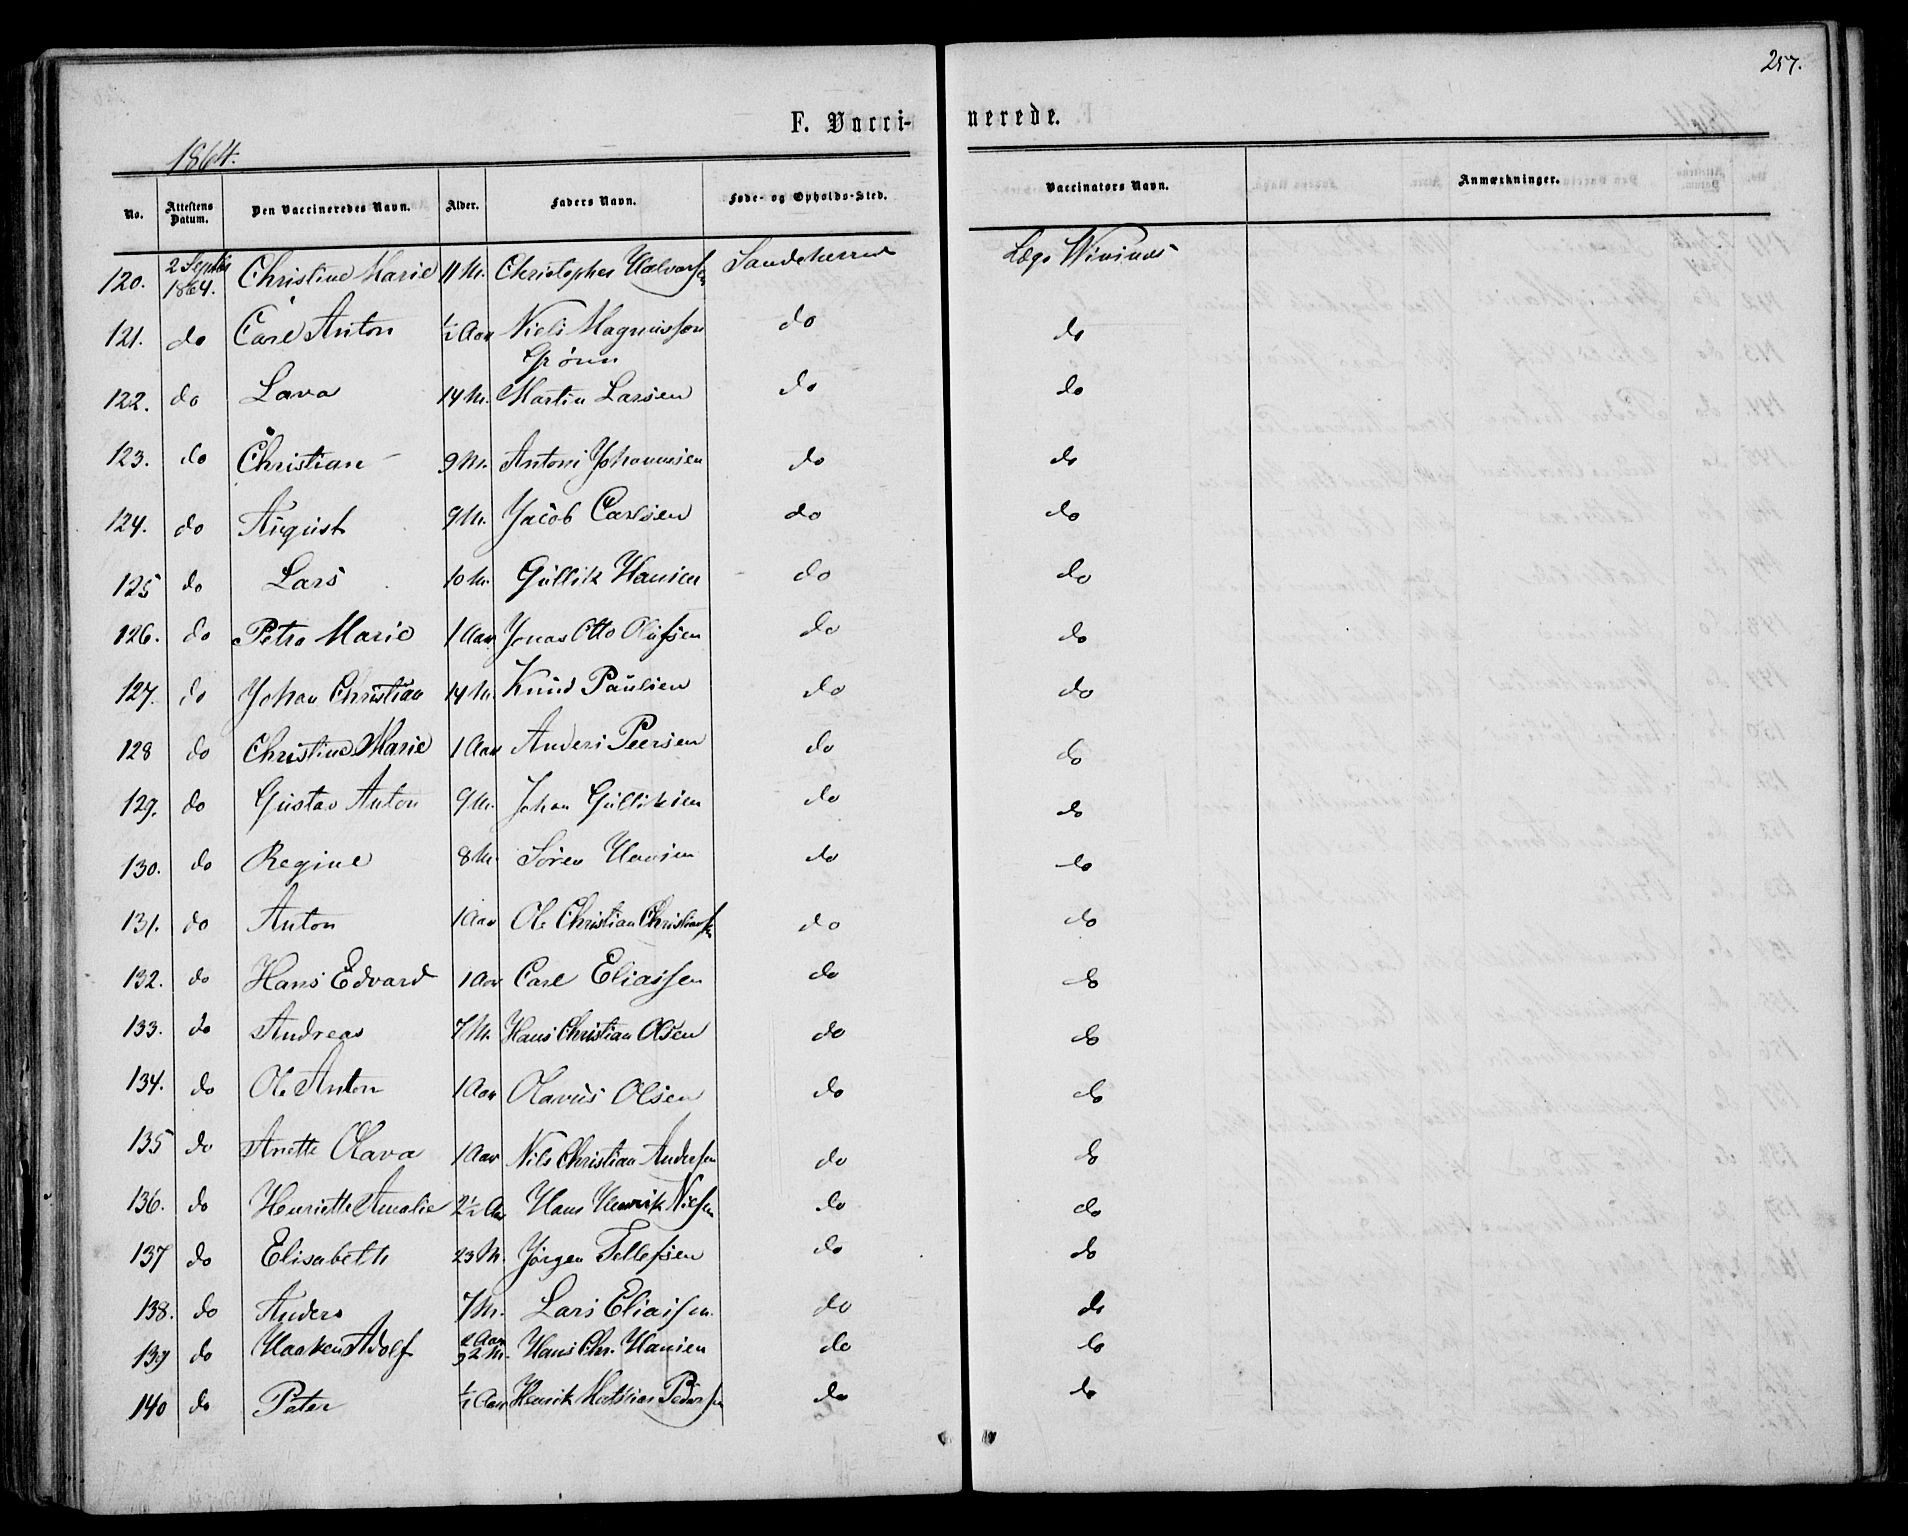 257.
F. Vacci- nerede.
1864.
No. Attestens Datum. Den Vaccineredes Navn. Alder. Faders Navn. Føde- og Opholds-Sted. Vaccinators Navn. Anmærkninger.
120. 2 Septbr 1864. Christine Marie 11 M. Christopher Halvorsen Sandeherred Læge
121. do Carl Anton ½ Aar Niels Magnussøn Grønn do do
122. do Lava 14 M. Martin Larsen do do
123. do Christian 9 M. Antoni Johannesen do do
124. do August 9 M. Jacob Carlsen do do
125 do Lars 10 M. Gullik Hansen do do
126. do Petra Marie 1 Aar Jonas Otto Olufsen do do
127. do Johan Christian 14 M. Knud Paulsen do do
128 do Christine Marie 1 Aar Anders Peersen do do
129. do Gustav Anton 9 M. Johan Gulliksen do do
130. do Regine 8 M. Søren Hansen do do
131. do Anton 1 Aar Ole Christian Christiansen do do
132. do Hans Edvard 1 Aar Carl Eliassen do do
133. do Andreas 7 M. Hans Christian Olsen do do
134. do Ole Anton 1 Aar Olavus Olsen do do
135 do Anette Olava 1 Aar Nils Christian Andersen do do
136. do Henriette Amalie 2½ Aar Hans Henrik Nilsen do do
137 do Elisabeth 23 M. Jørgen Tellefsen do do
138. do Anders 7 M. Lars Eliassen do do
139 do Haaken Adolf 2 M. Hans Chr. Hansen do do
140 do Peter ½ Aar Henrik Mathias Pedersen do do